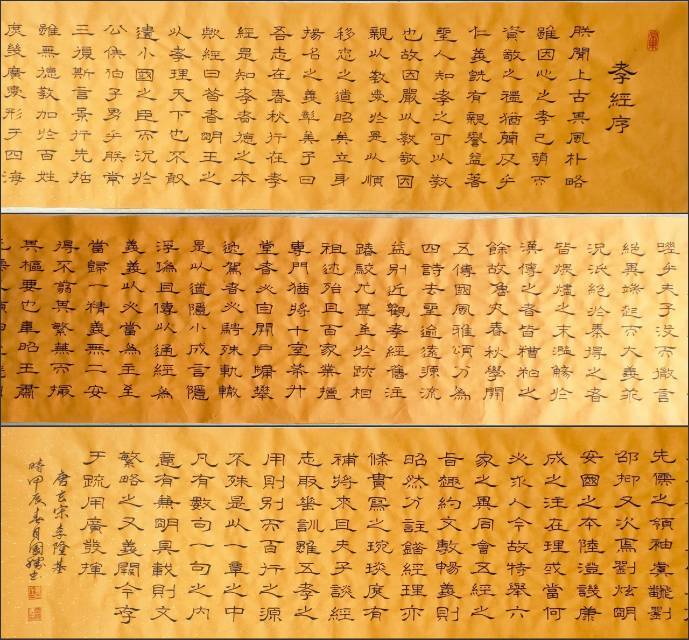 孝經序
朕聞上古其風朴略
雖因心之孝已萌而
資敬之禮猶簡及乎
仁義既有親譽益著
聖人知孝之可以教
也故因嚴以教敬因
親以教愛於是以順
移忠之道昭矣立身
揚名之義彰矣子曰
吾志在春秋行在孝
經是知孝者德之本
歟經曰昔者明王之
以孝理天下也不敢
遺小國之臣而況於
公侯伯子男乎朕嘗
三復斯言景行先哲
雖無德教加於百姓
庶幾廣愛形于四海
嗟乎夫子沒而微言
絕異端起而大義乖
況泯絕於秦得之者
皆煨燼之末濫觴於
漢傳之者皆糟粕之
餘故魯史春秋學開
五傳國風雅頌分為
四詩去聖逾遠源流
益別近觀孝經舊注
踳駁尤甚至於跡相
祖述殆且百家業擅
專門猶將十室希升
堂者必自開戶牖攀
逸駕者必騁殊軌轍
是以道隱小成言隱
浮偽且傳以通經為
義義以必當為主至
當歸一精義無二安
得不翦其繁蕪而撮
其樞要也韋昭王肅
先儒之領袖虞翻劉
邵抑又次焉劉炫明
安國之本陸澄譏康
成之注在理或當何
必求人今故特舉六
家之異同會五經之
旨趣約文敷暢義則
昭然分註錯經理亦
條貫寫之琬琰庶有
補將來且夫子談經
志取垂訓雖五孝之
用則別而百行之源
不殊是以一章之中
凡有數句一句之內
意有兼明具載則文
繁略之又義闕今存
于疏用廣發揮
唐玄宗李隆基
時甲辰春月國